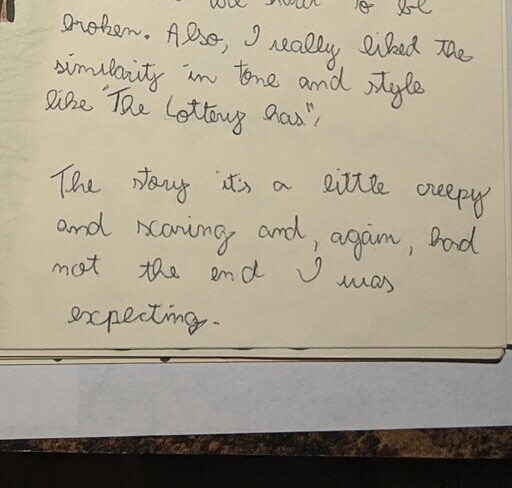 to be
broken. Also, I really liked the
similarity in tone and style
like "The Lottery has",
The story it's a little creepy
and scaring and, again, had
not the end I was
expecting.